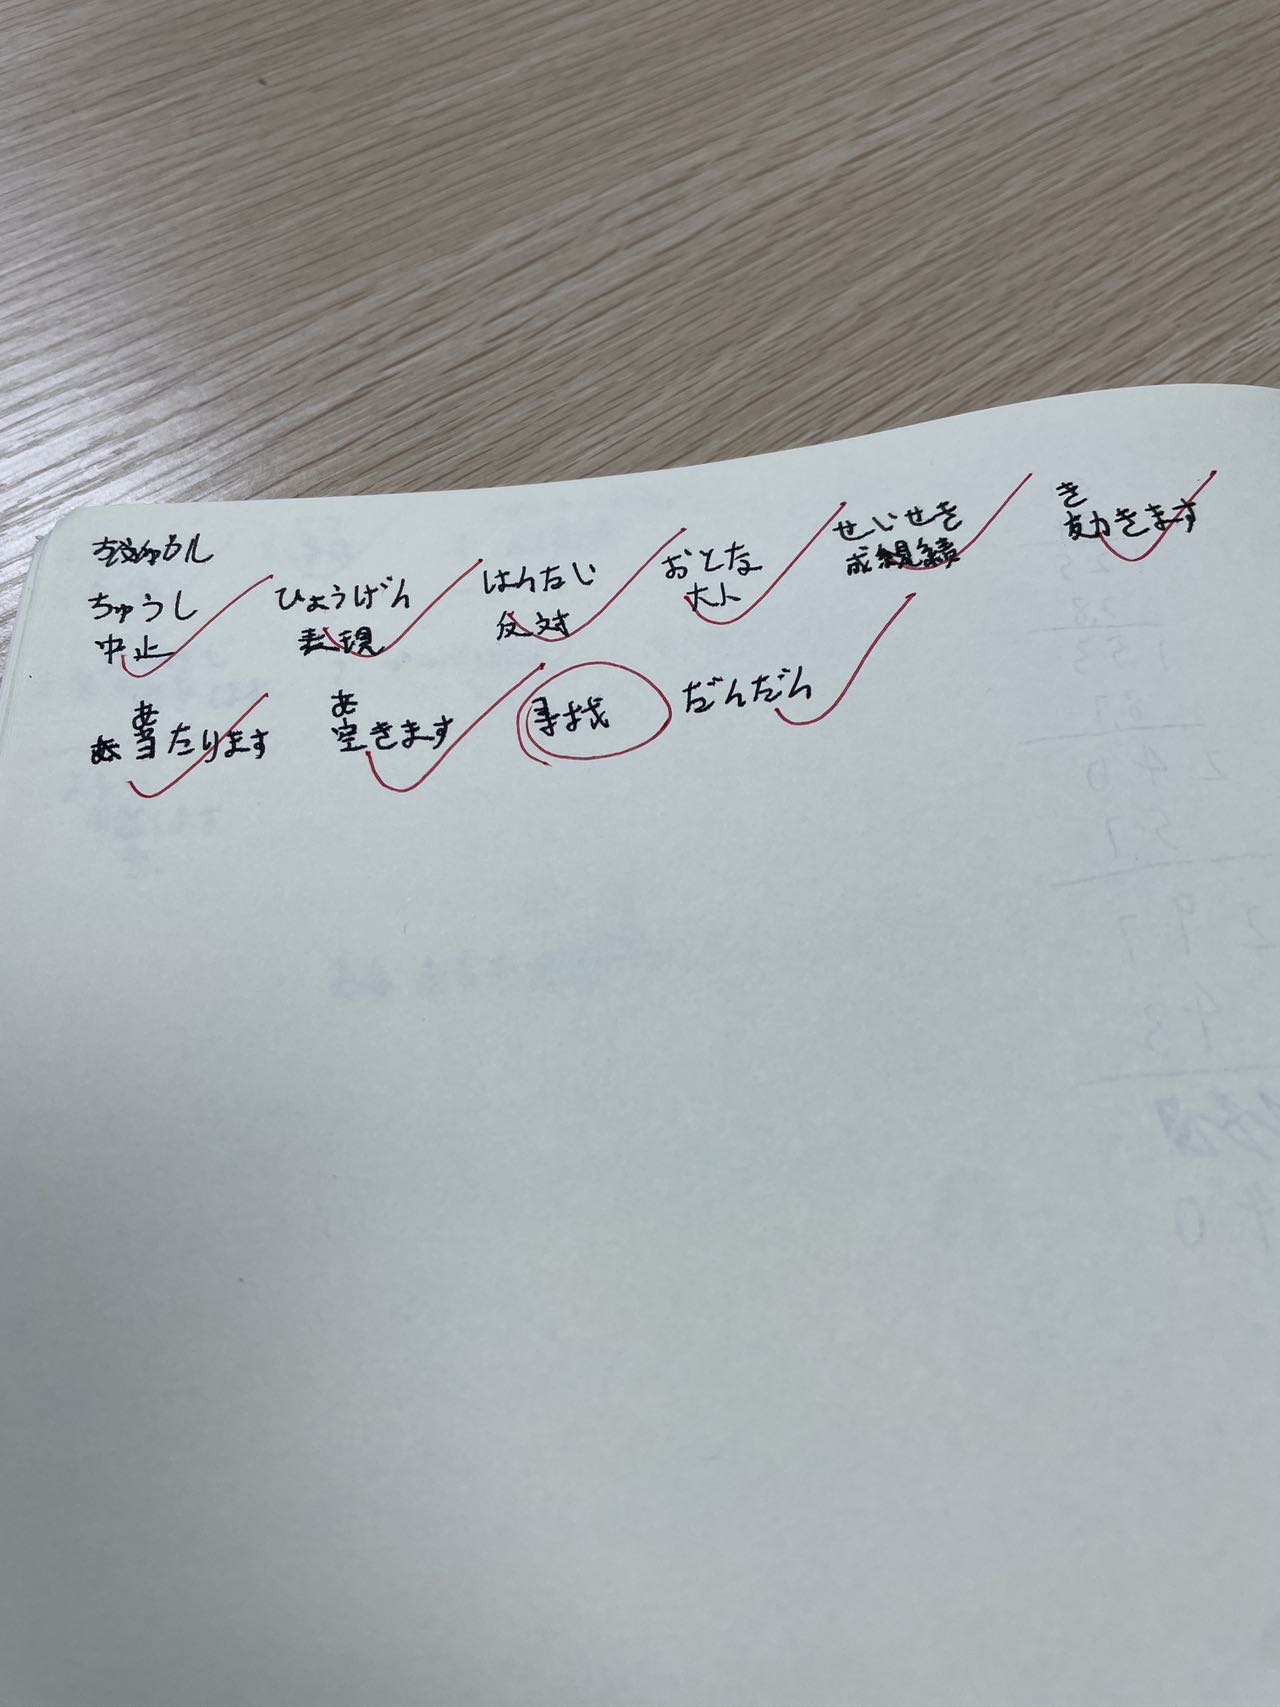 ちゅうし ひょうげん はんたい おとな せいせき き
中止 表現 反対 大人 成績 効きます
あ あ
当たります 空きます 手找 だんだん